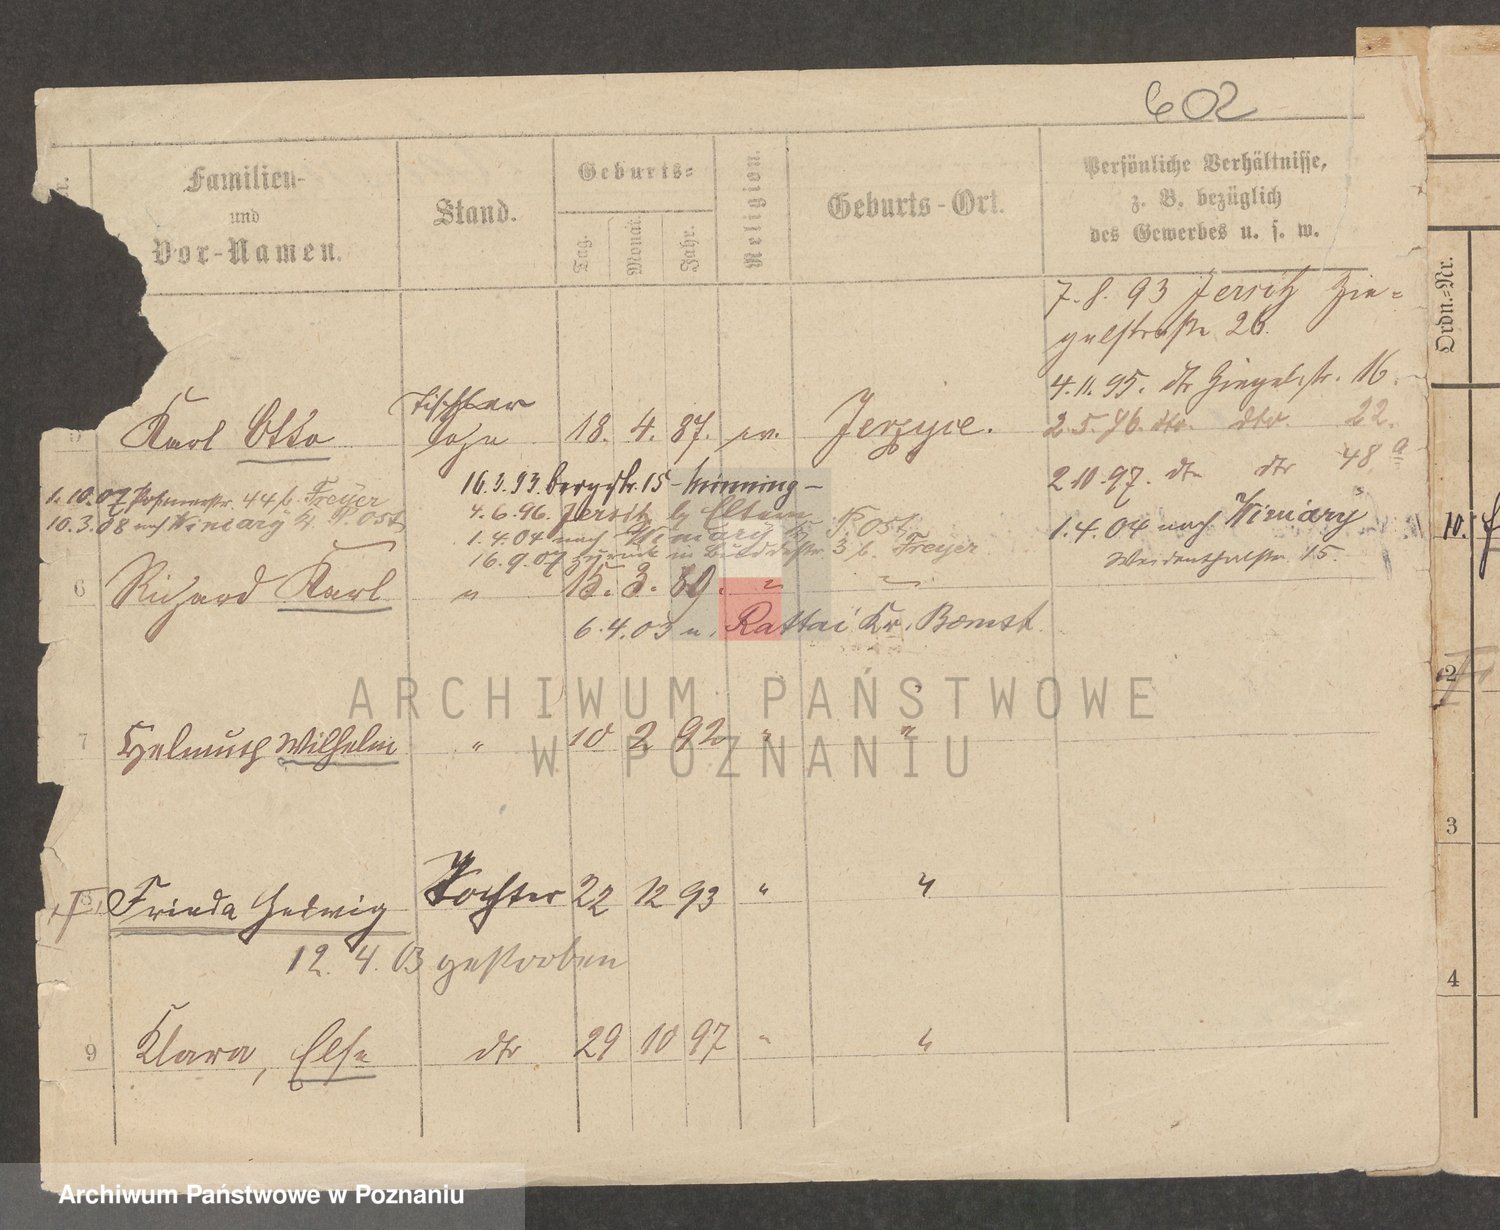 602
Familien-
und
Vor-Namen.
Stand.
Geburts-
Tag.
Monat.
Jahr.
Religion.
Geburts-Ort.
Persönliche Verhältnisse,
z. B. bezüglich
des Gewerbes u. s. w.
7. 8. 93 Jersitz Zie-
gelstraße 26.
4. 11. 95. dto Ziegelstr. 16.
2. 5. 96. dto. dto. 22.
2. 10. 97. dto dto 48 a
1. 4. 04 nach Winiary
15.
Karl Otto
Tischler
Sohn
18. 4. 87. ev. Jerzyce.
1. 10. 07 44 b. Freyer
10. 3. 08 nach Winiary b. Post
16. 3. 93. Bergstr. 15
4. 6. 96. Jersitz b. Eltern
1. 4. 04 nach Winiary b. Post
16. 9. 07 zurück in 3 b. Freyer
6 Richard Karl " 15. 3. 89. " "
6. 4. 03 n. Rattai Kr. Bomst.
7 Helmuth Wilhelm " 10 2 92 " "
8 Frieda Hedwig Tochter 22 12 93 " "
12. 4. 03 gestorben
9 Klara, Else dto 29 10 97 " "
Ordn.-Nr.
10.
2
3
4
ARCHIWUM PAŃSTWOWE
W POZNANIU
Archiwum Państwowe w Poznaniu